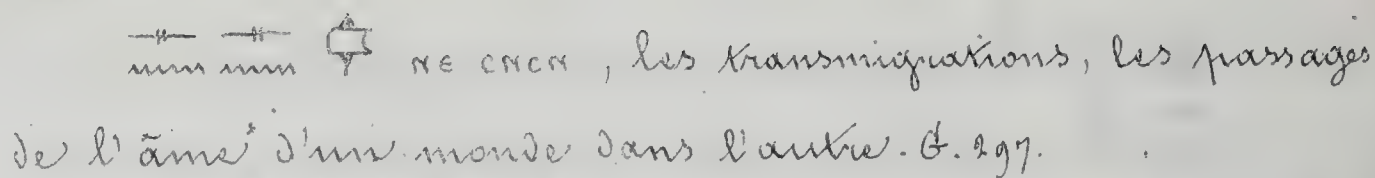 𓊃𓈖𓊃𓈖 ⲛⲉ ⲥⲛⲥⲛ, les transmigrations, les passages
de l'âme d'un monde dans l'autre. G. 297.